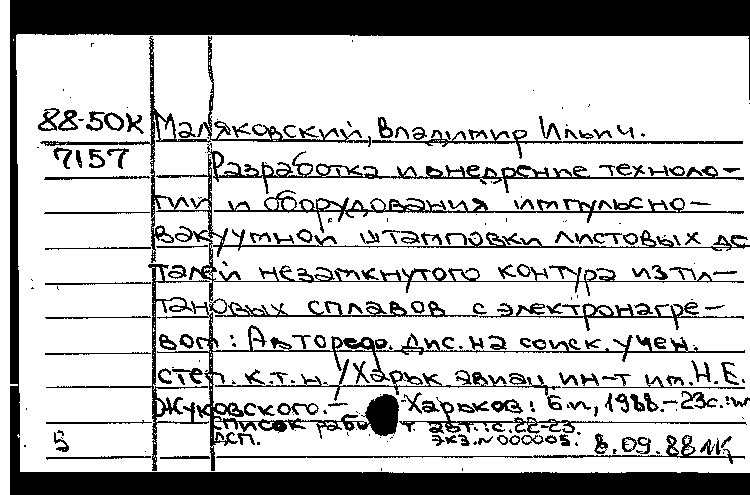 88-50К Маляковский, Владимир Ильич.
7157 Разработка и внедрение техноло-
гии и оборудования импульсно-
вакуумной штамповки листовых де
талей незамкнутого контура из ти-
тановых сплавов с электронагре-
вом: Автореф. дис. на соиск. учен.
степ. к.т.н. /Харьк. авиац. ин-т им. Н.Е.
Жуковского.- Харьков: Б.и., 1988.-23с.:
список рабо т авт.: с.22-23.
ДСП. экз. N 000005.
5 8.09.88